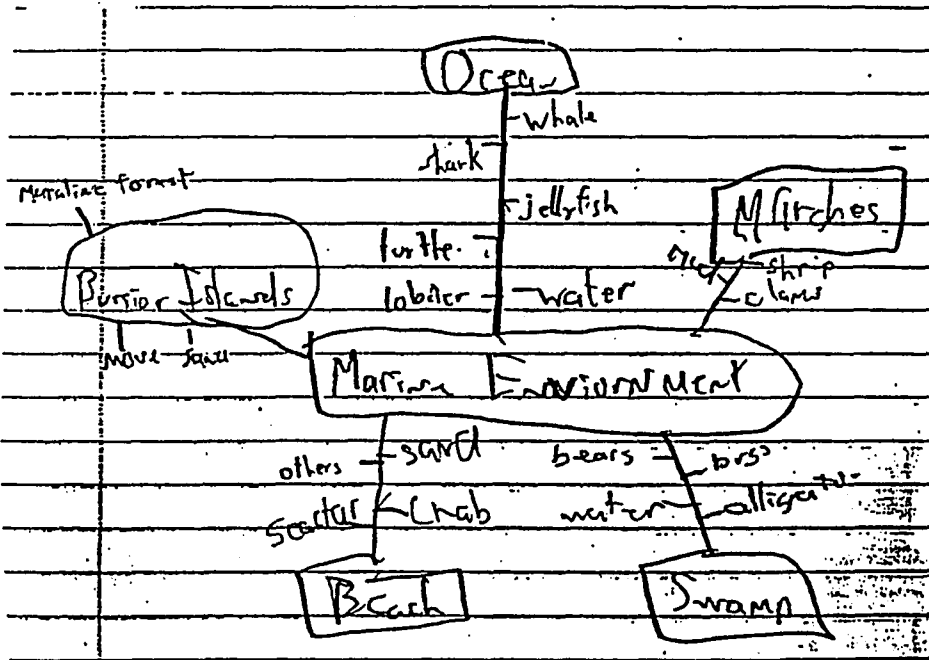 Ocean
whale
shark
jellyfish
turtle
lobster
water
Maratine forest
Barrier Islands
move
Marshes
mud
shrip
clams
Marine Enviornment
sand
others
seastar
Crab
Beach
bears
water
alligator
Swamp